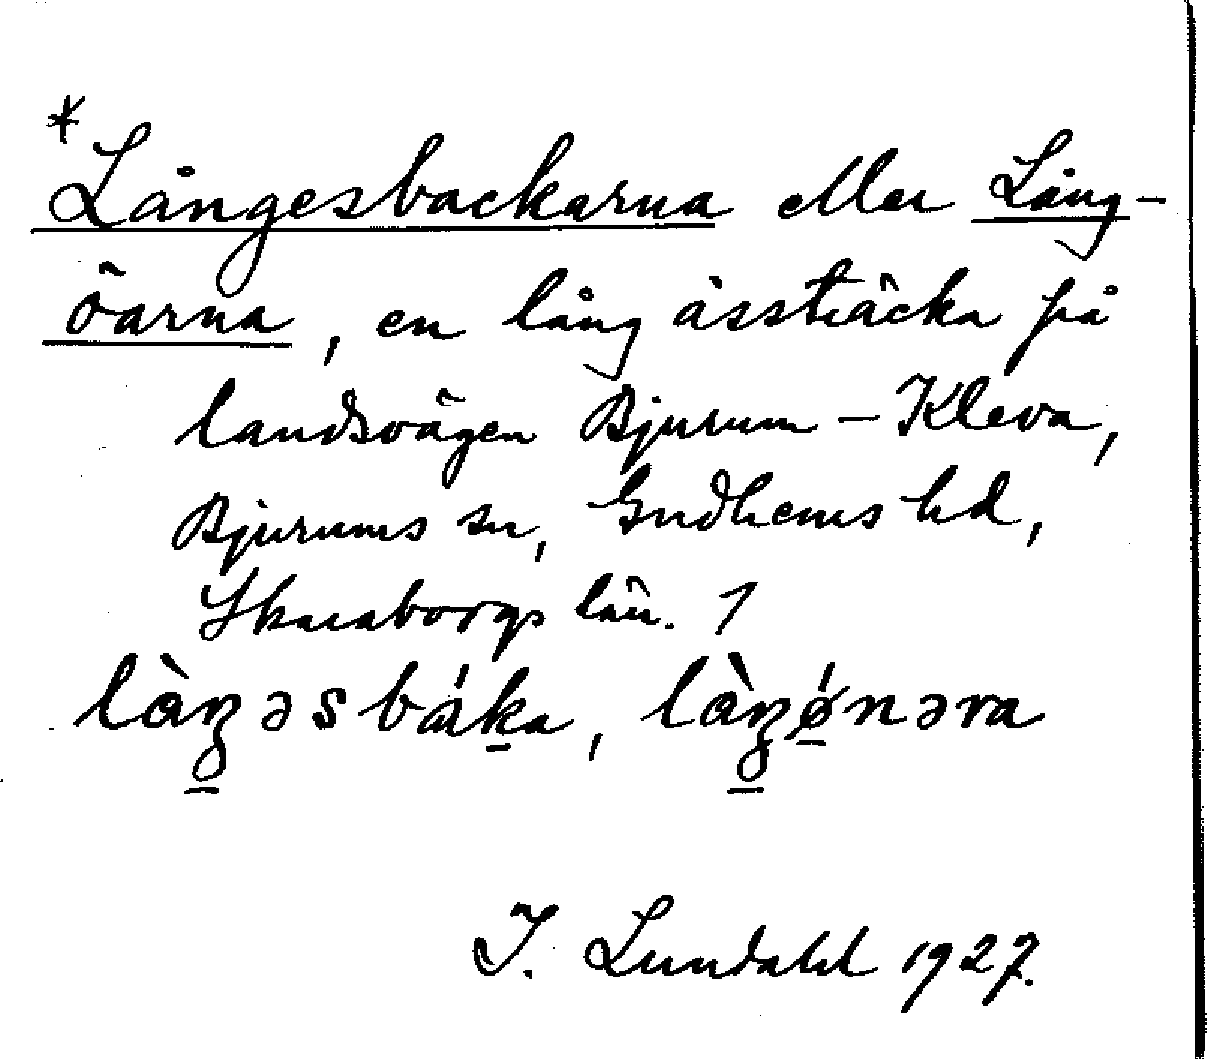 * Långesbackarna eller Lång-
öarna, en lång åssträcka på
landsvägen Bjurum – Kleva,
Bjurums sn, Gudhems hd,
Skaraborgs län. 1
I. Lundahl 1927.